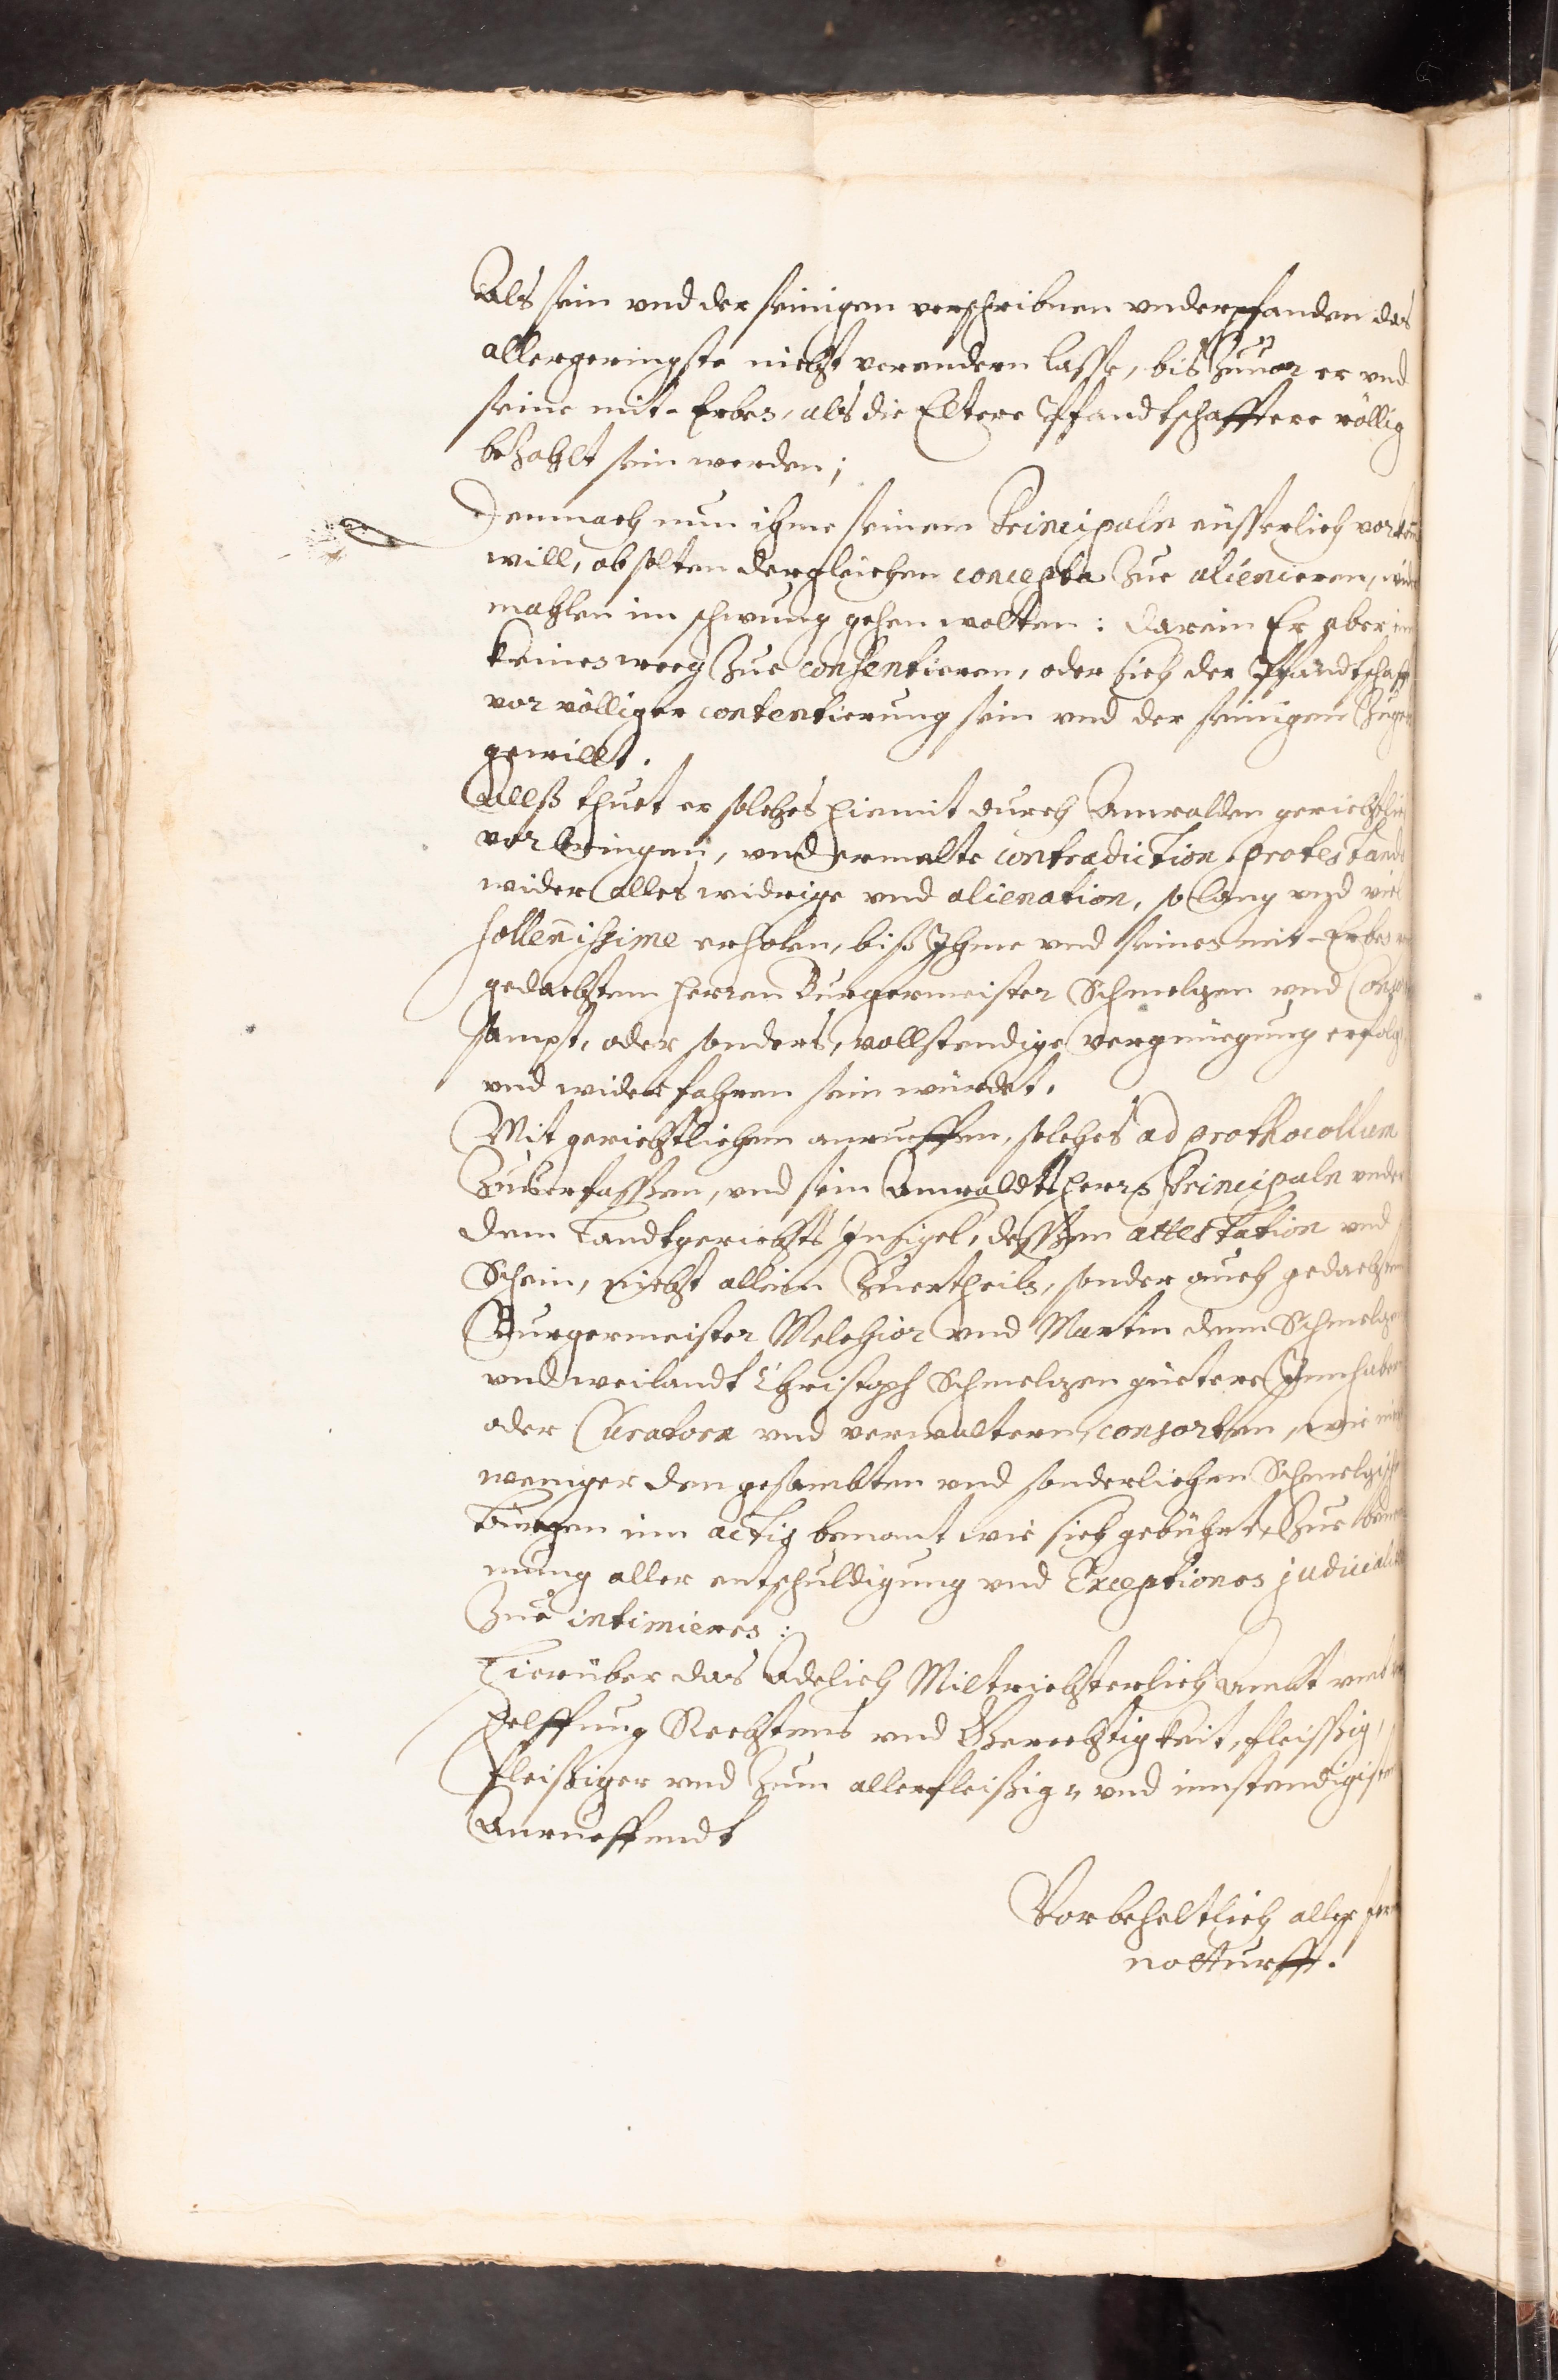 Als sein vnd der seinigen verschribnen vnderpfanden das
allergeringste nicht verendern lasse, bis Zuuor er vnd
seine mit-Erben, als die Eltere Pfandtschafftere völlig
bezahlt sein werden;
Demnach nun ihme seinem Principaln eüsserlich
will, ob solten dergleichen concepta Zue alienieren,
mahlen im schwung gehen wolten: darein Er aber
keinesweeg Zue consentieren, oder sich der Pfandtschafft
vor völliger contentierung sein vnd der seinigen
gewillt.
Allß thuet er solches hiemit durch Anwalden gerichtlich
vorbringen, vnd ermelte contradiction protestando
wider alles widrige vnd alienation, so lang vnd viel
sollennissime erholen, biß Ihme vnd seinen mit-Erben
gedachtem Herren Burgermeister Schmelzen vnd
sampt, oder sonders, vollstendige vergnüegung erfolgt
vnd widerfahren sein würdet.
Mit gerichtlichem anrueffen, solches ad prothocollum
Zuuerfassen, vnd sein Anwaldts Herrn Principaln vnder
dem Landtgerichts Insigel, dessen attestation vnd
Schein, nicht allein Zuertheiln, sonder auch gedachtem
Burgermeister Melchior vnd Martin denn Schmelzen
vnd weilandt Christoph Schmelzen güetere Innhabern
oder Curatorn vnd verwaltern, consorten, wie
weniger den gesambten vnd sonderlichen Schmelzischen
Bürgen inn actis benant wie sich gebührt, Zue
mung aller entschuldigung vnd Exceptiones judicialiter
Zue intimieren:
Hierüber das Adelich Miltrichterlich Ambt vmb
helffung Rechtens vnd Gerechtigkeit, fleissig,
fleißiger vnd Zum allerfleißig- vnd innstendigisten
Anrueffendt
Vorbeheltlich aller
notturfft.